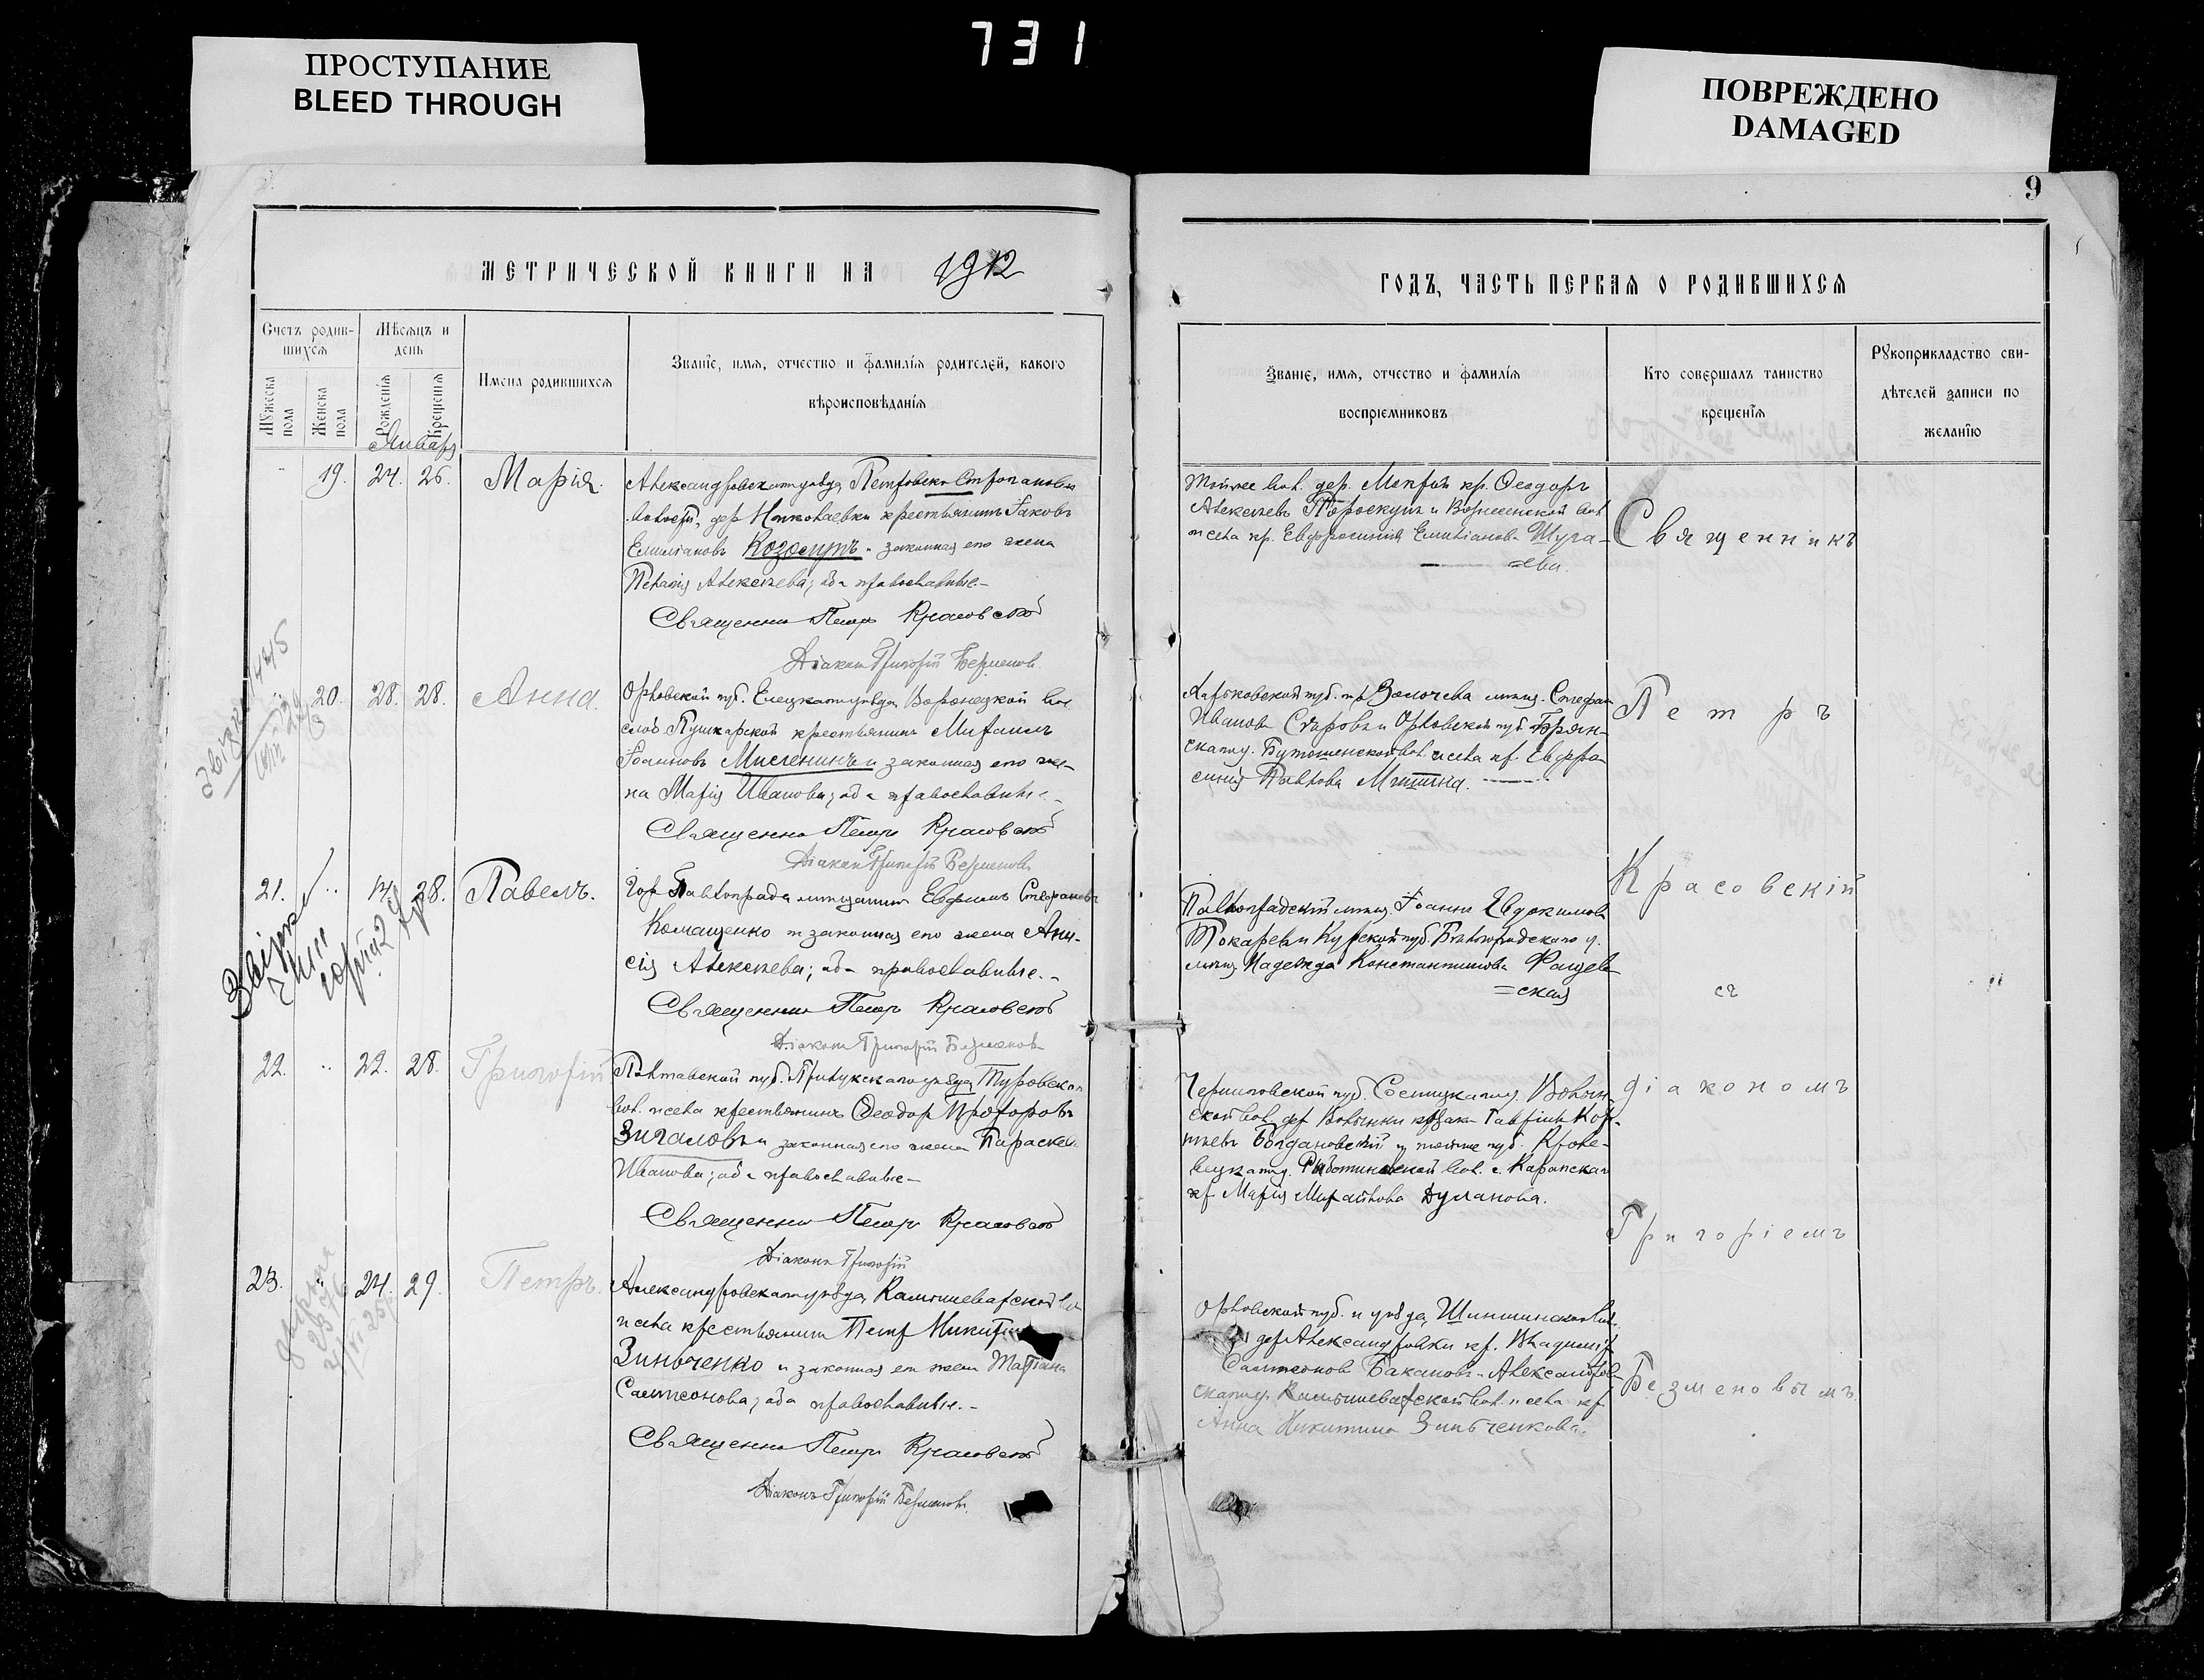 731
ПРОСТУПАНИЕ
BLEED THROUGH
ПОВРЕЖДЕНО
DAMAGED
9
МЕТРИЧЕСКОЙ КНИГИ НА 1912
ГОДЪ, ЧАСТЬ ПЕРВАЯ О РОДИВШИХСЯ
Счетъ родив-
шихся
Мѣсяцъ и
день
Мужеска
пола
Женска
пола
Рожденія
Крещенія
Имена родившихся
Званіе, имя, отчество и фамилія родителей, какого
вѣроисповѣданія
Званіе, имя, отчество и фамилія
воспріемниковъ
Кто совершалъ таинство
крещенія
Рукоприкладство сви-
дѣтелей записи по
желанію
Январь
19. 24. 26. Марія.
Александровскаго уѣзда, Петровско
волости, дер. Николаевки крестьянинъ Іаковъ
Емиліановъ Козолупъ и законная его жена
Пелагія Алексѣева; оба православные.-
Священникъ Петръ Красовскій
Діаконъ Григорій Безменовъ.
Тойже вол. дер. кр. Ѳеодоръ
Алексѣевъ и Вознесенской вол.
и села кр. Евфросинія Емиліанова Шуга-
=ева.
20. 28. 28. Анна.
Орловской губ. Елецкаго уѣзда, Воронецкой вол.
слоб. Пушкарской крестьянинъ Михаилъ
Іоанновъ и законная его же-
на Марія Иванова; оба православные.-
Священникъ Петръ Красовскій
Діаконъ Григорій Безменовъ
Харьковской губ. гр. Золочева мѣщ. Стефанъ
Ивановъ и Орловской губ. Брян-
скаго у. вол. и села кр. Евфро-
синія Павлова Митина.
21. 14. 28. Павелъ.
Гор. Павлограда мѣщанинъ Евфимъ Стефановъ
Комащенко и законная его жена Ани-
сія Алексѣева; оба православные.-
Священникъ Петръ Красовскій
Діаконъ Григорій Безменовъ
Павлоградскій мѣщ. Іоаннъ Евдокимовъ
Токаревъ и Курской губ. Бѣлгородскаго у.
мѣщ. Надежда Константинова Фащев-
=ская
22. 22. 28. Григорій
Полтавской губ. Прилукскаго уѣзда, Туровской
вол. и села крестьянинъ Ѳеодоръ Прохоровъ
Зигаловъ и законная его жена Параскева
Иванова; оба православные-
Священникъ Петръ Красовскій
Діаконъ Григорій
Черниговской губ. Сосницкаго у. Волын-
ской вол. дер. Волынки козакъ Гавріилъ
Богдановскій и тойже губ. Кроле-
вецкаго у. вол. с.
кр. Марія Михайлова Думанова.
23. 24. 29. Петръ.
Александровскаго уѣзда, Камышеватской вол.
и села крестьянинъ Петръ Никитинъ
Зинченко и законная его жена Татіана
Самсонова; оба православные.-
Священникъ Петръ Красовскій
Діаконъ Григорій Безменовъ.
Орловской губ. и уѣзда,
дер. Александровки кр. Владиміръ
Самсоновъ Бакановъ и Александров-
скаго у. Камышеватской вол. и села кр.
Анна Никитина Зинченкова.
Священникъ
Петръ
Красовскій
съ
діакономъ
Григоріемъ
Безменовымъ